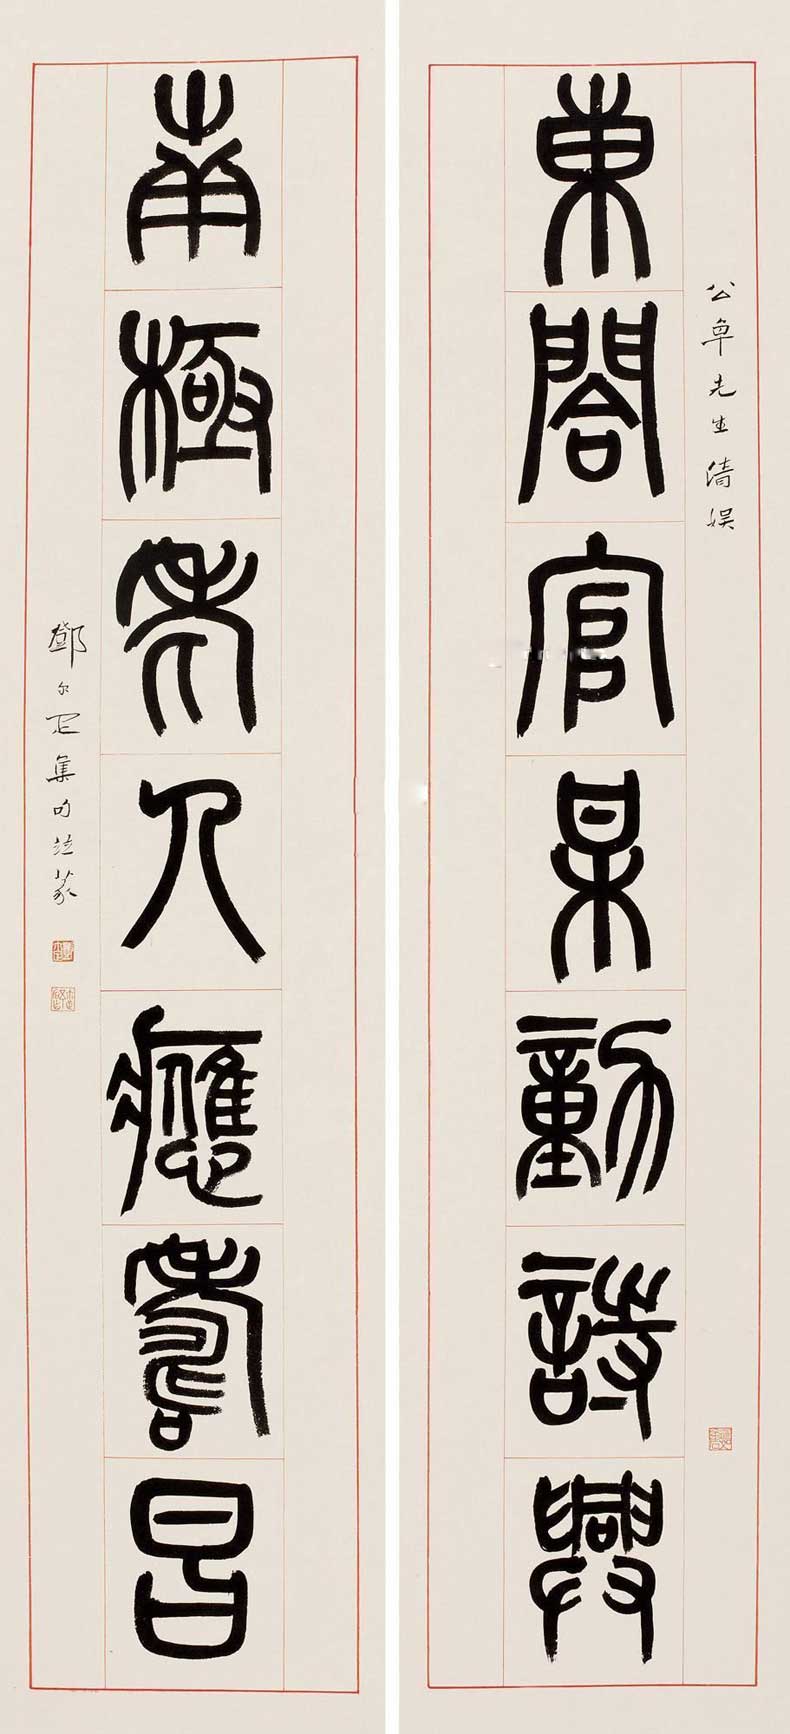 公卓先生清娛
東閣官某動詩興
南極老人應壽昌
鄧尔疋集句竝篆